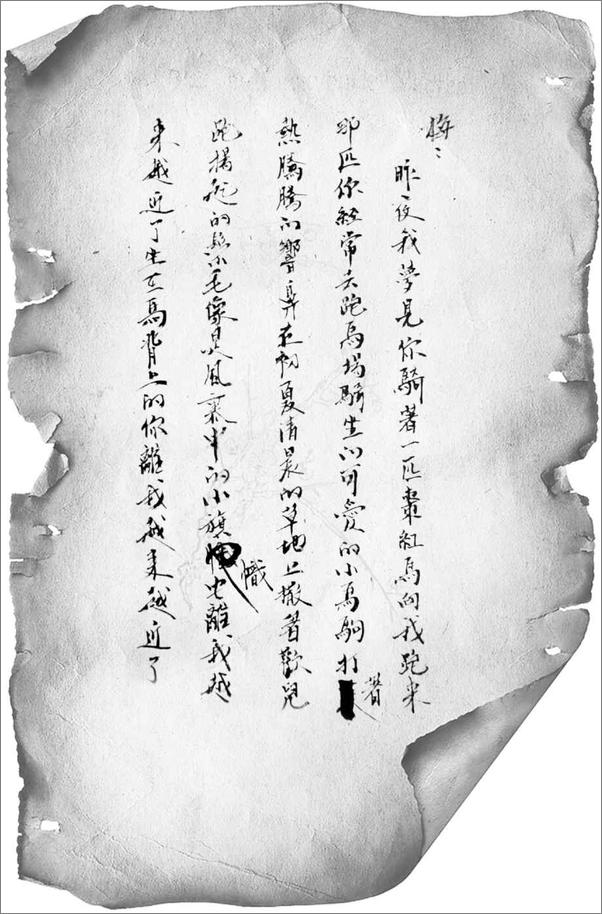 梅：
昨夜我夢見你騎著一匹棗紅馬向我跑來
那匹你經常去跑馬場騎坐的可愛的小馬駒打著
熱騰騰的響鼻在初夏清晨的草地上撒著歡兒
跑揚起的鬃毛像是風裏中的小旗幟它離我越
來越近了坐在馬背上的你離我越來越近了